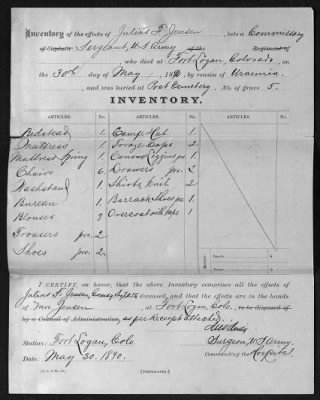 Inventory of the effects of Julius F. Jensen, late a Commissary
of Captain Sergeant, U.S. Army of the Regiment of
who died at Fort Logan, Colorado, on
the 30th day of May, 1890, by reason of Uraemia,
and was buried at Post Cemetery. No. of grave 5.
INVENTORY.
ARTICLES. No. ARTICLES. No. ARTICLES. No.
Bedstead 1. Camp Hat 1.
Mattress 1. Forage Caps 2.
Mattress Spring 1. Canvas Leggins prs 1.
Chairs 6. Drawers prs. 2.
Washstand 1. Shirts knit 2.
Bureau 1. Barrack Shoes prs 1.
Blouses 3 Overcoat with Cape 1
Trousers prs. 2
Shoes prs. 2.
I CERTIFY, on honor, that the above Inventory comprises all the effects of
Julius F. Jensen, Comsy. Sgt. U.S.A. deceased, and that the effects are in the hands
of Mrs Jensen, at Fort Logan, Colo. to be disposed of
by a Council of Administration, as per Receipt attached.
Station: Fort Logan, Colo. Surgeon, U.S. Army,
Date: May 30. 1890. Commanding the Hospital.